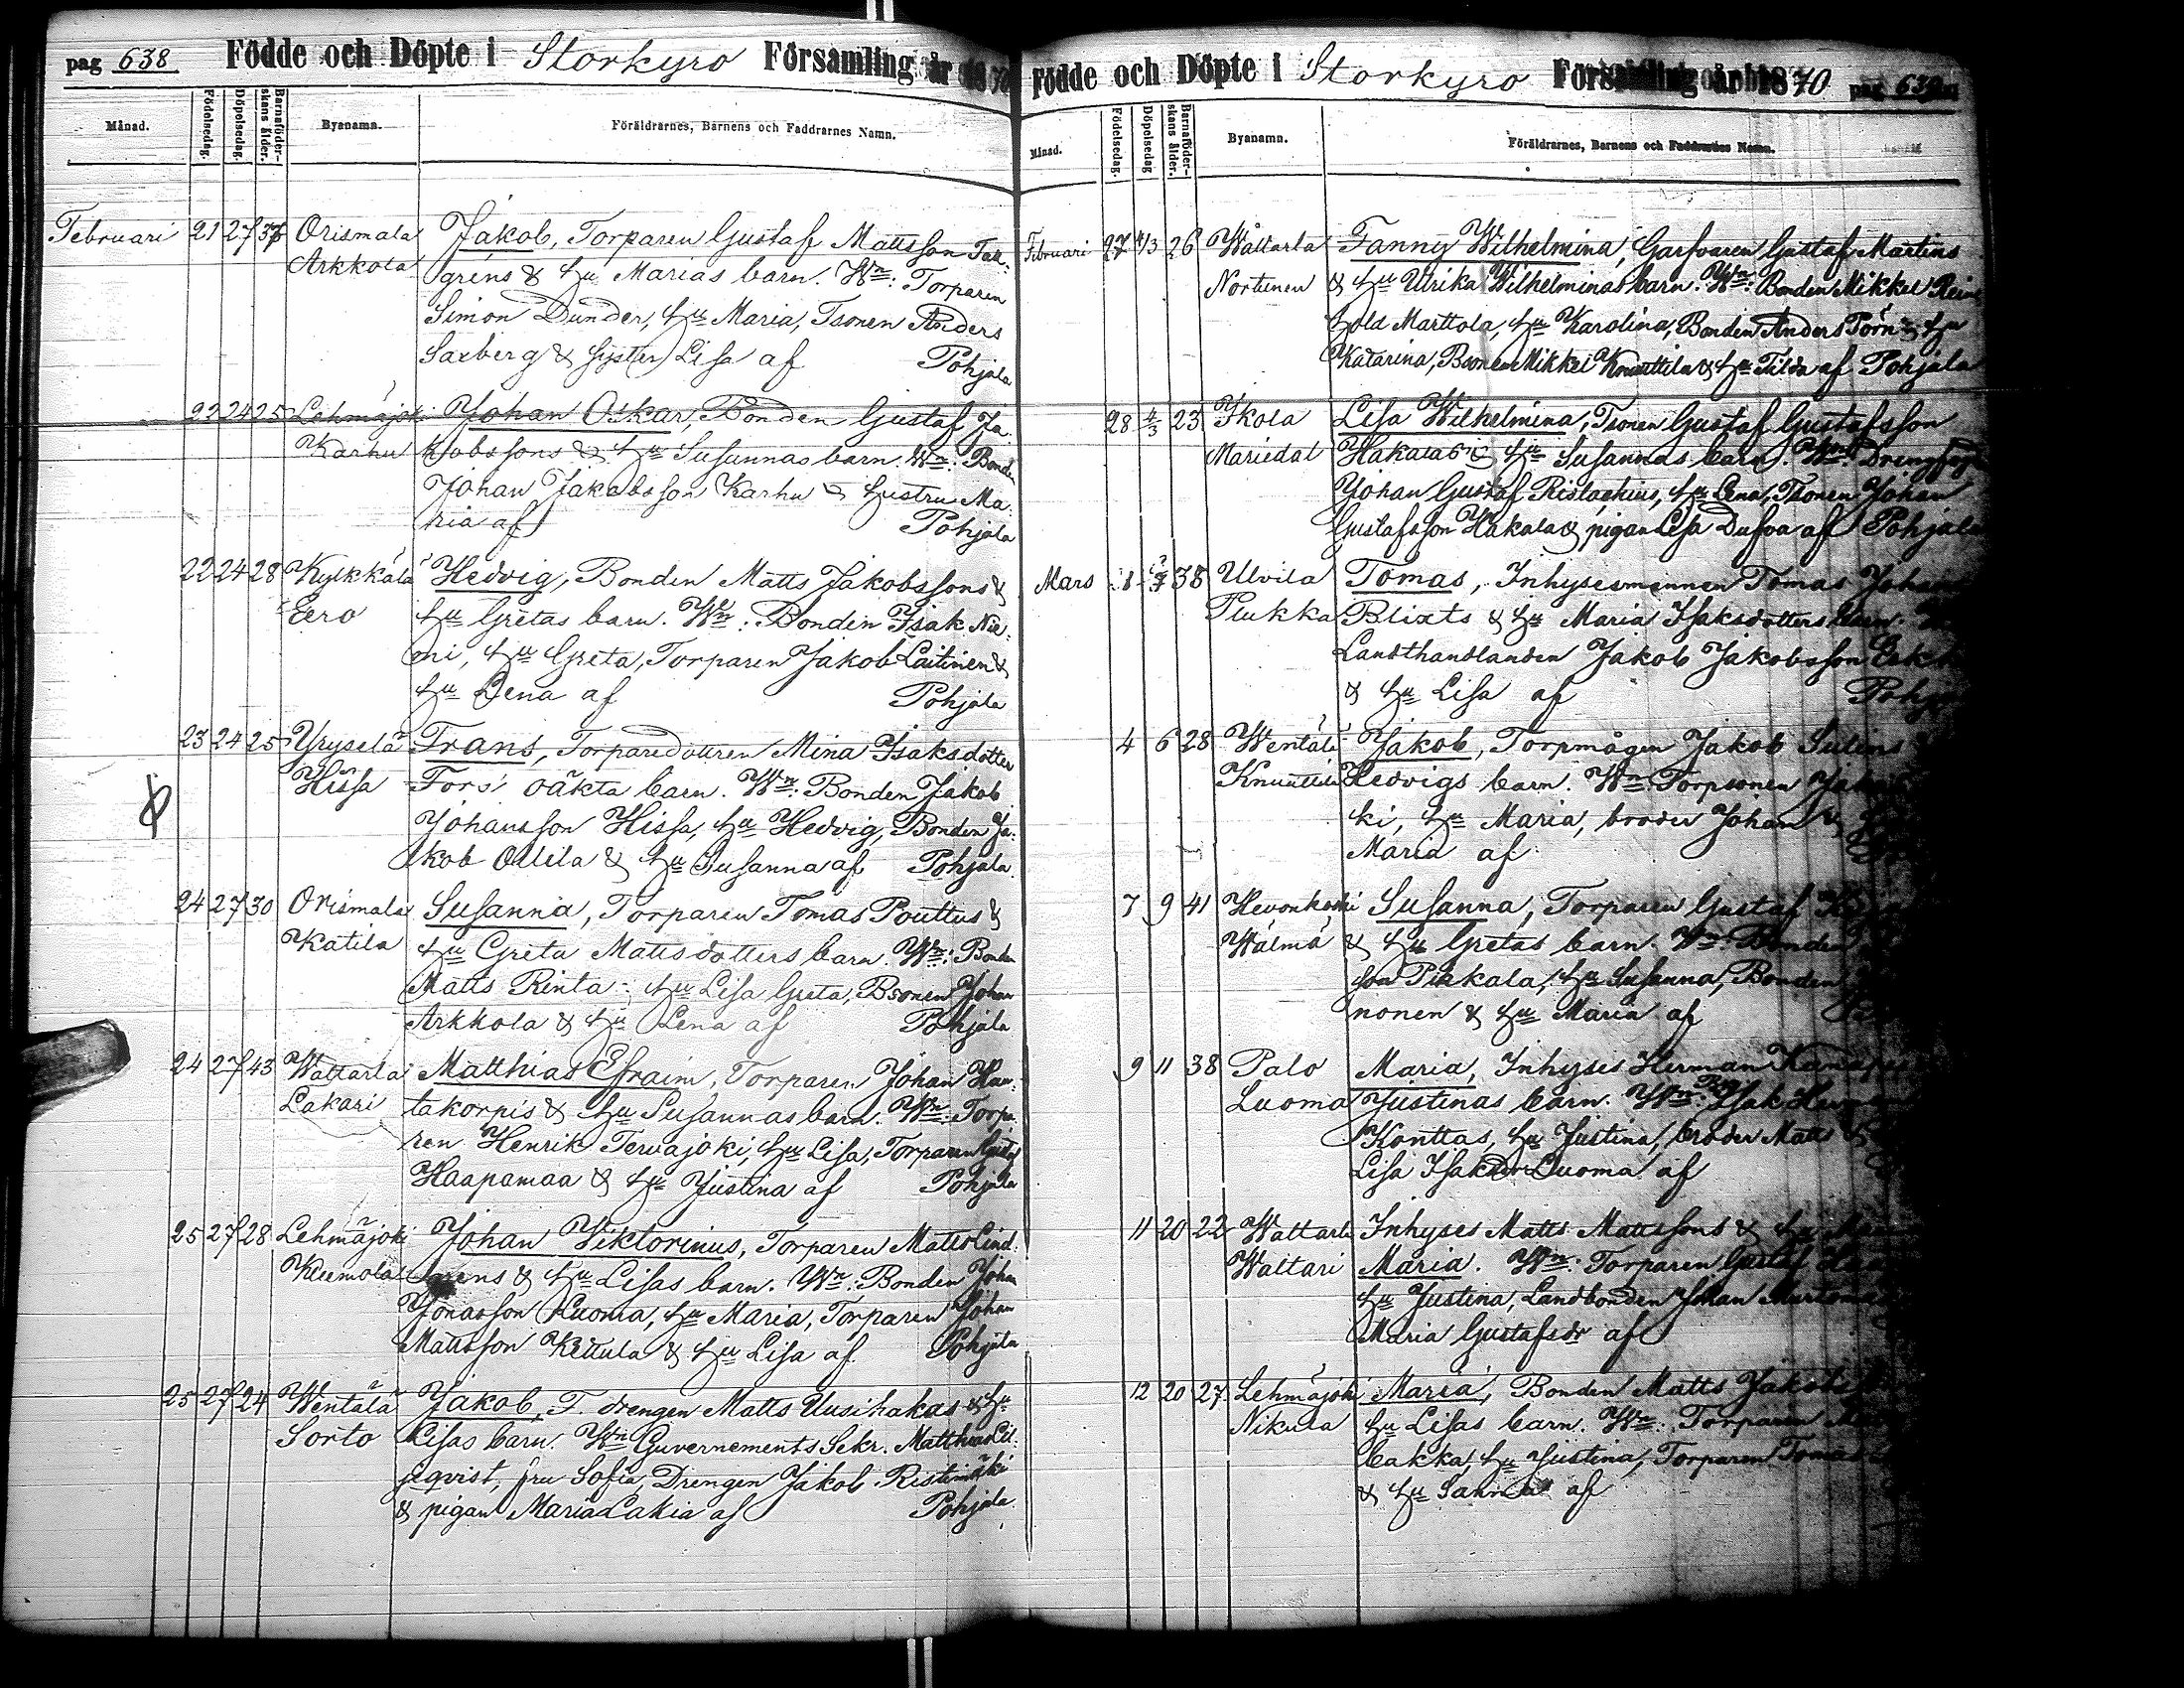 pag 638 Födde och Döpte i Storkyro Församling år 1870
Månad. Födelsedag. Döpelsedag. Barnaföderskans ålder. Byanamn. Föräldrarnes, Barnens och Faddrarnes Namn.
Februari 21 27 37 Orismala Jakob, Torparen Gustaf Mattsson Tall-
Arkkola gréns & hu Marias barn. Wn: Torparen
Simon Dunder, hu Maria, Tsonen Anders
Saxberg & syster Lisa af Pohjala
22 24 25 Lehmäjoki Johan Oskar, Bonden Gustaf Ja-
Karhu kobssons & hu Susannas barn. Wn: Bonden
Johan Jakobsson Karhu & hustru Ma-
ria af Pohjala
22 24 28 Kylkkälä Hedvig, Bonden Matts Jakobssons &
Eero hu Gretas barn. Wn: Bonden Isak Nie-
mi, hu Greta, Torparen Jakob Laitinen &
hu Lena af Pohjala
23 24 25 Yryselä Frans, Torparedottren Mina Isaksdotter
Hissa Fors' oäkta barn. Wn: Bonden Jakob
Johansson Hissa, hu Hedvig, Bonden Ja-
kob Ollila & hu Susanna af Pohjala.
24 27 30 Orismala Susanna, Torparen Tomas Pouttus &
Katila hu Greta Mattsdotters barn. Wn: Bonden
Matts Rinta- hu Lisa Greta, Bsonen Johan
Arkkola & hu Lena af Pohjala
24 27 43 Wattarla Matthias Efraim, Torparen Johan Hau-
Lakari takorpis & hu Susannas barn. Wn: Torpa-
ren Henrik Tervajoki, hu Lisa, Torparen Gustaf
Haapamaa & hu Justina af Pohjala
25 27 28 Lehmäjoki Johan Viktorinus, Torparen Matts Lind-
Kuemola grens & hu Lisas barn. Wn: Bonden Johan
Jonasson Luoma, hu Maria, Torparen Johan
Mattsson Kettula & hu Lisa af Pohjala
25 27 24 Wentälä Jakob, F. drengen Matts Uusihakas & hu
Sorto Lisas barn. Wn Guvernements Sekr. Matthias Lil-
jeqvist, fru Sofia, Drengen Jakob Ristimäki
& pigan Maria Lakia af Pohjala.
Födde och Döpte i Storkyro Församling år 1870 pag 639
Månad. Födelsedag. Döpelsedag. Barnaföderskans ålder. Byanamn. Föräldrarnes, Barnens och Faddrarnes Namn.
Februari 27 4/3 26 Wattarla Fanny Wilhelmina, Garfvaren Gustaf Martins
Nortunen & hu Ulrika Wilhelminas barn. Wn: Bonden Mikkel Rein-
hold Marttola, hu Karolina, Bonden Anders Törn & hu
Katarina, Bsonen Mikkel Knuuttila & hu Tilda af Pohjala
28 4/3 23 Ikola Lisa Wilhelmina, Tsonen Gustaf Gustafsson
Mariedal Hakalas & hu Susannas barn. Wn:
Johan Gustaf hu Lena, Tsonen Johan
Gustafsson Hakala & pigan Lisa Dufva af Pohjala
Mars 38 Ulvila Tomas, Inhysesmannen Tomas
Plukka Blixts & hu Maria Isaksdotters barn.
Landthandlanden Jakob Jakobsson
& hu Lisa af
4 6 28 Wentälä Jakob, Torpmågen Jakob
Knuuttila Hedvigs barn. Wn: Torpsonen
ki, hu Maria, broder Johan &
Maria af
7 9 41 Hevonkoski Susanna, Torparen Gustaf
Wälmä & hu Gretas barn. Wn: Bonden
son Pirkala, hu Susanna, Bonden
nonen & hu Maria af
9 11 38 Palo Maria, Inhyses Herman
Luoma Justinas barn. Wn: Isak
Konttas, hu Justina, broder Matts &
Lisa Isaksdr Luoma af
11 20 22 Wattarla Inhyses Matts Mattssons & hu
Wattari Maria. Wn: Torparen Gustaf
hu Justina, Landbonden Johan
Maria Gustafsdr af
12 20 27 Lehmäjoki Maria, Bonden Matts
Nikula hu Lisas barn. Wn: Torparen
Lakka, hu Justina, Torparen Tomas
& hu Sanna af